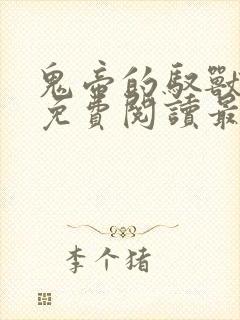 鬼帝的馭獸
免費閱讀最
李个猪